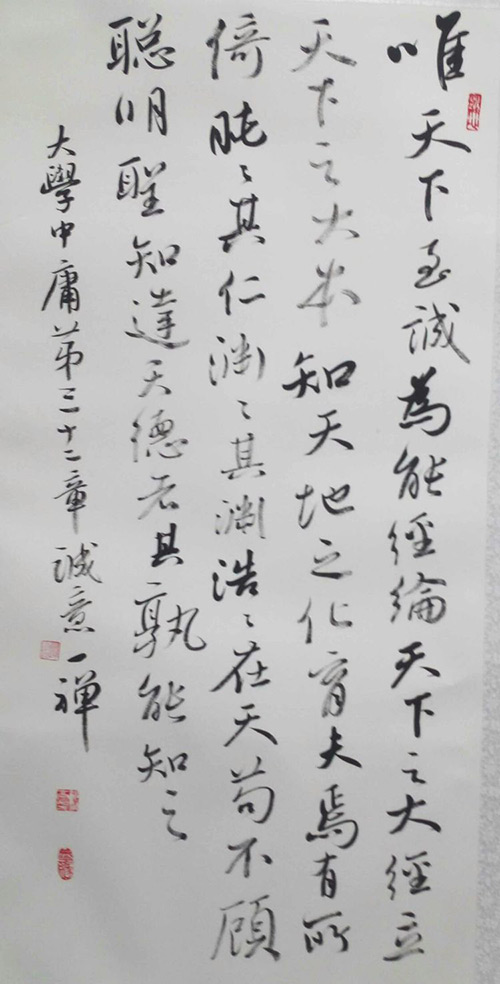 唯天下至誠為能經綸天下之大經立
天下之大本知天地之化育夫焉有所
倚肫〻其仁渊〻其渊浩〻在天苟不顧
聡明聖知達天德者其孰能知之
大學中庸第三十二章誠意一禅